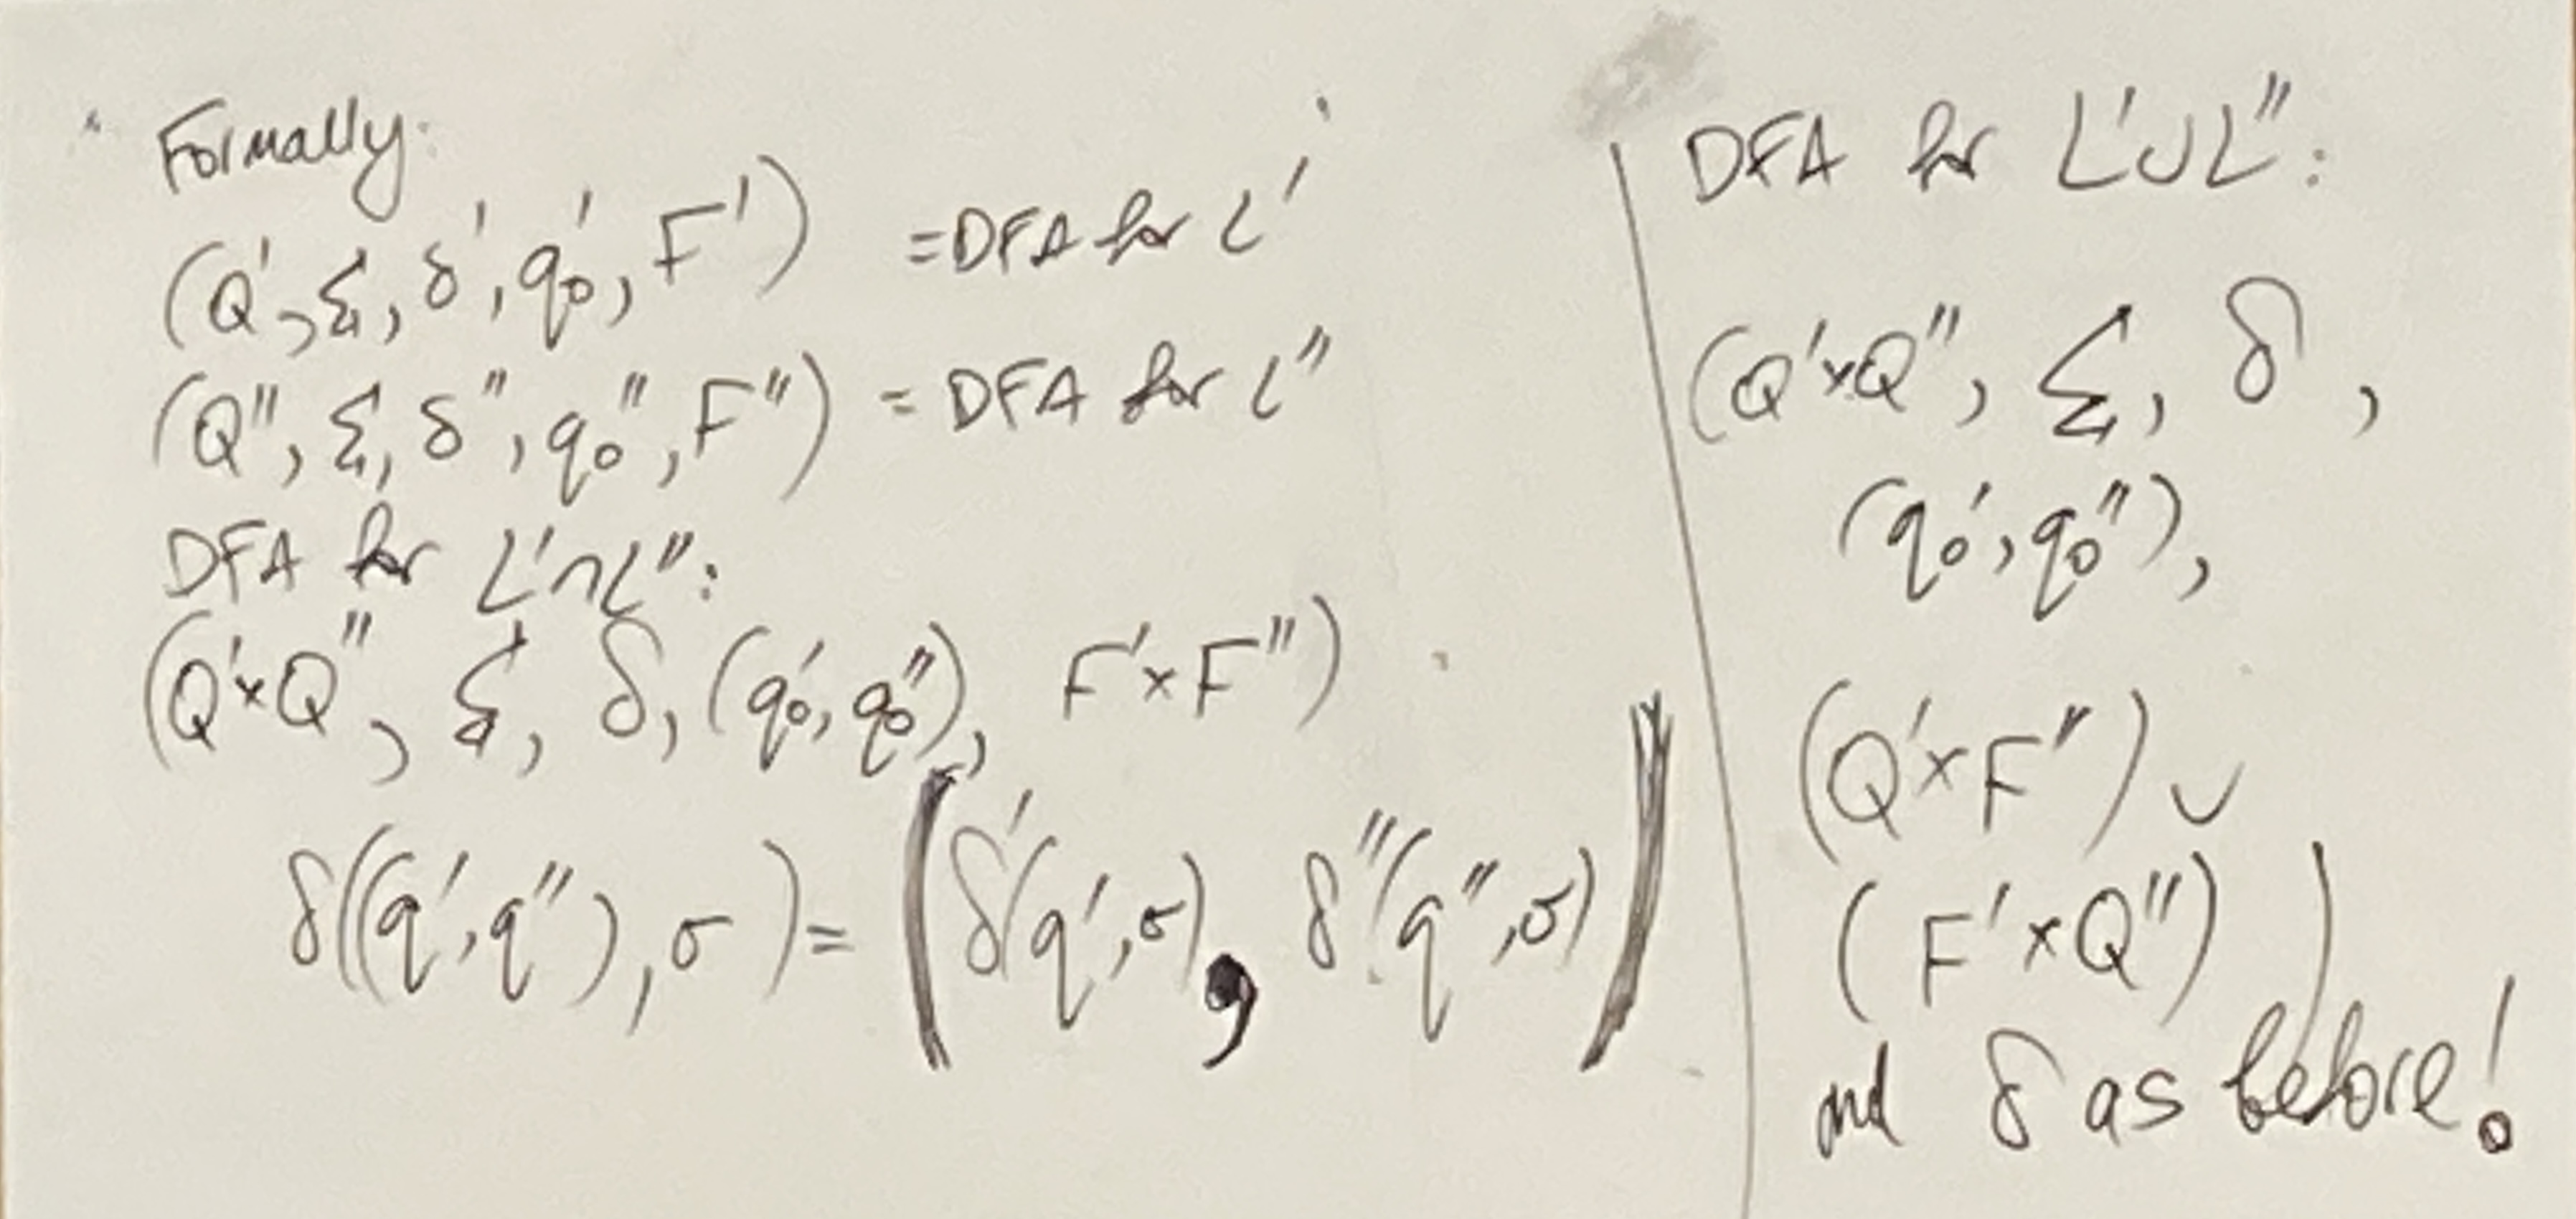 Formally:
(Q', Σ, δ', q₀', F') = DFA for L'
(Q'', Σ, δ'', q₀'', F'') = DFA for L''
DFA for L'∩L'':
(Q'×Q'', Σ, δ, (q₀', q₀''), F'×F'')
δ((q', q''), σ) = (δ'(q', σ), δ''(q'', σ))
DFA for L'∪L'':
(Q'×Q'', Σ, δ,
(q₀', q₀''),
(Q'×F'') ∪
(F'×Q''))
and δ as before!